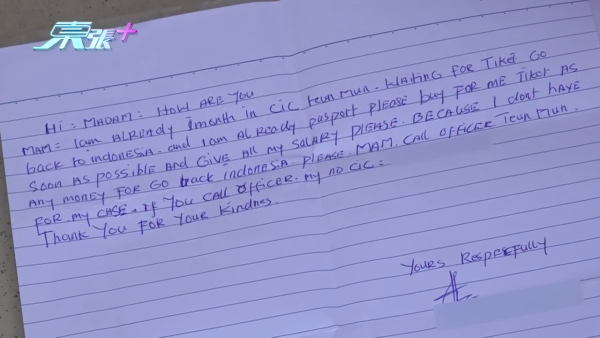 東張+
Hi = MADAM = HOW ARE YOU
MAM = I am ALREADY 1month in CIC teun mun. WAITING FOR TIKET GO
back to indonesia. and I am ALReady pasport PLEASE buy FOR ME TIKET AS
Soon AS possible AND GIVE ALL my SALARY PLEASE. BECAUSE I dont HAVE
Any money FOR GO back Indonesia PLEASE MAM. CALL OFFICER Teun Mun.
FOR my CASE. if YOU CALL OFFICER. my no CIC =
Thank You FOR Your Kindnes.
Yours Respeefully